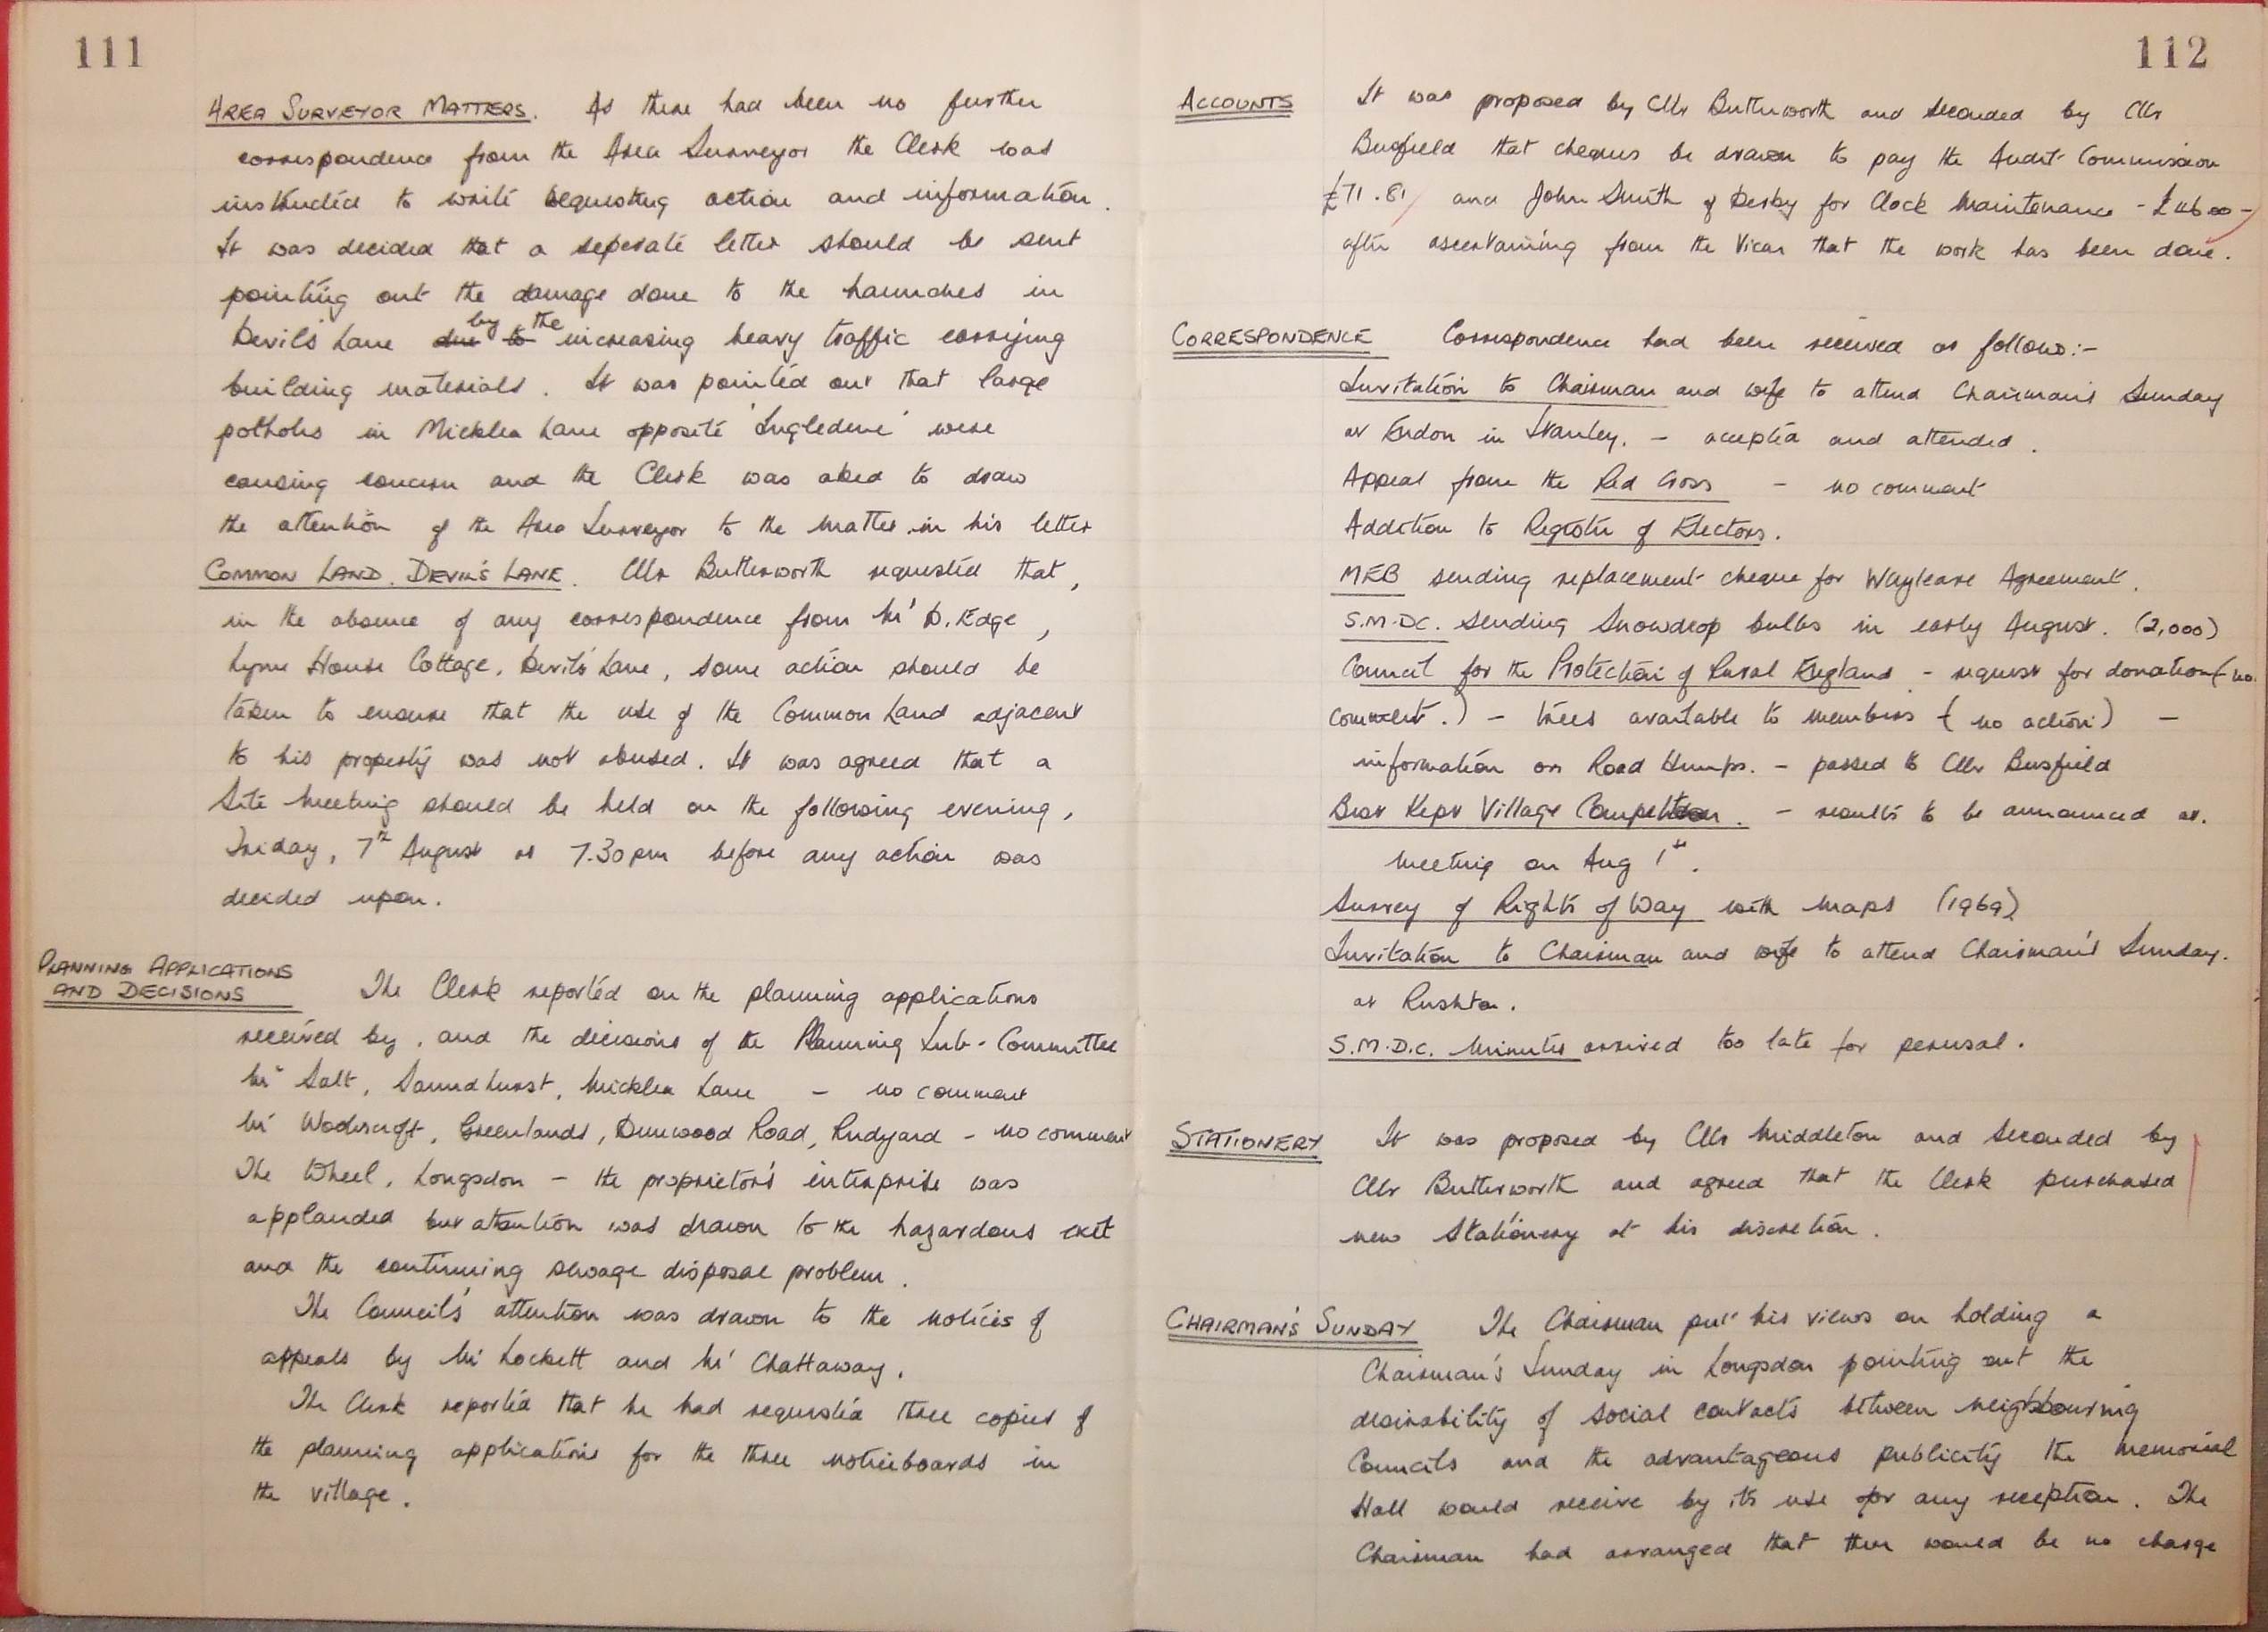 111
AREA SURVEYOR MATTERS. As there had been no further
correspondence from the Area Surveyor the Clerk was
instructed to write requesting action and information.
It was decided that a seperate letter should be sent
pointing out the damage done to the haunches in
Devil's Lane due to by the increasing heavy traffic carrying
building materials. It was pointed out that large
potholes in Micklea Lane opposite 'Ingledene' were
causing concern and the Clerk was asked to draw
the attention of the Area Surveyor to the matter in his letter
COMMON LAND. DEVIL'S LANE. Cllr Butterworth requested that,
in the absence of any correspondence from Mr D. Edge,
Lyme House Cottage, Devil's Lane, some action should be
taken to ensure that the use of the Common Land adjacent
to his property was not abused. It was agreed that a
Site meeting should be held on the following evening,
Friday, 7th August at 7.30pm before any action was
decided upon.
PLANNING APPLICATIONS
AND DECISIONS The Clerk reported on the planning applications
received by, and the decisions of the Planning Sub-Committee
Mr Salt, Micklea Lane – no comment
Mr Woodscroft, Greenlands, Dunwood Road, Rudyard – no comment
The Wheel, Longsdon – the proprietor's interprise was
applauded but attention was drawn to the hazardous exit
and the continuing sewage disposal problem.
The Council's attention was drawn to the notices of
appeals by Mr Lockett and Mr Chattaway.
The Clerk reported that he had requested three copies of
the planning applications for the three noticeboards in
the village.
112
ACCOUNTS It was proposed by Cllr Butterworth and seconded by Cllr
Busfield that cheques be drawn to pay the Audit Commission
£71.81 and John Smith of Derby for Clock Maintenance -
after ascertaining from the Vicar that the work has been done.
CORRESPONDENCE Correspondence had been received as follows:-
Invitation to Chairman and wife to attend Chairman's Sunday
at Endon in Stanley. – accepted and attended.
Appeal from the Red Cross – no comment
Addition to Register of Electors.
MEB sending replacement cheque for Wayleave Agreement.
S.M.DC. sending Snowdrop bulbs in early August. (2,000)
Council for the Protection of Rural England – request for donation (no
comment.) – trees available to members (no action) –
information on Road Humps. – passed to Cllr Busfield
Best Kept Village Competition. – results to be announced at
meeting on Aug 1st.
Survey of Rights of Way with maps (1969)
Invitation to Chairman and wife to attend Chairman's Sunday.
at Rushton.
S.M.D.C. Minutes arrived too late for perusal.
STATIONERY It was proposed by Cllr Middleton and seconded by
Cllr Butterworth and agreed that the Clerk purchased
new Stationery at his discretion.
CHAIRMAN'S SUNDAY The Chairman put his views on holding a
Chairman's Sunday in Longsdon pointing out the
desirability of social contacts between neighbouring
Councils and the advantageous publicity the Memorial
Hall would receive by its use for any reception. The
Chairman had arranged that there would be no charge